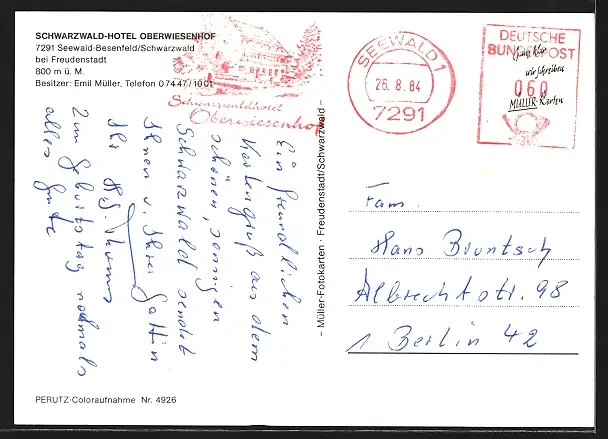 SCHWARZWALD-HOTEL OBERWIESENHOF
7291 Seewald-Besenfeld/Schwarzwald
bei Freudenstadt
800 m ü. M.
Besitzer: Emil Müller, Telefon 0 74 47/10 01
Schwarzwaldhotel
Oberwiesenhof
SEEWALD 1
26.8.84
7291
DEUTSCHE
BUNDESPOST
wir schreiben
060
MÜLLER-Karten
Ein freundlichen
Kartengruß aus dem
schönen, sonnigen
Schwarzwald sendet
Ihnen u. Ihrer Gattin
Ihr
Zum Geburtstag nochmals
alles Gute
– Müller-Fotokarten · Freudenstadt/Schwarzwald –
Fam.
Hans Bruntsch
Albrechtstr. 98
1 Berlin 42
PERUTZ-Coloraufnahme Nr. 4926